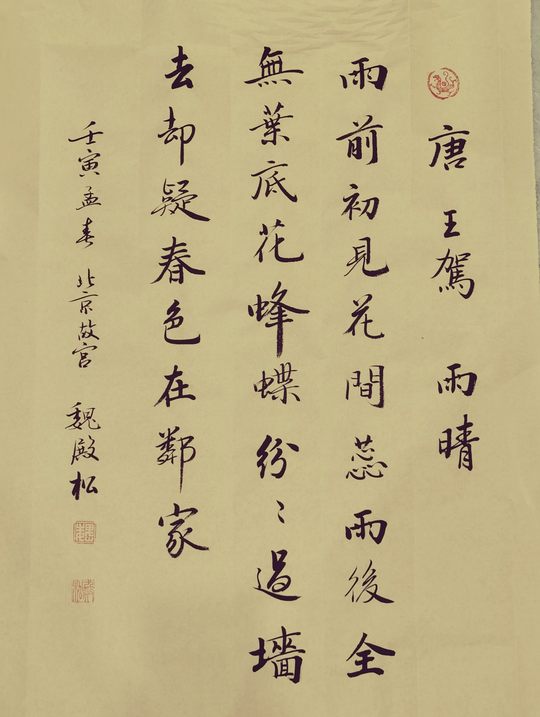 唐 王駕 雨晴
雨前初見花間蕊雨後全
無葉底花蜂蝶紛〻過墻
去却疑春色在鄰家
壬寅孟春 北京故宫 魏殿松